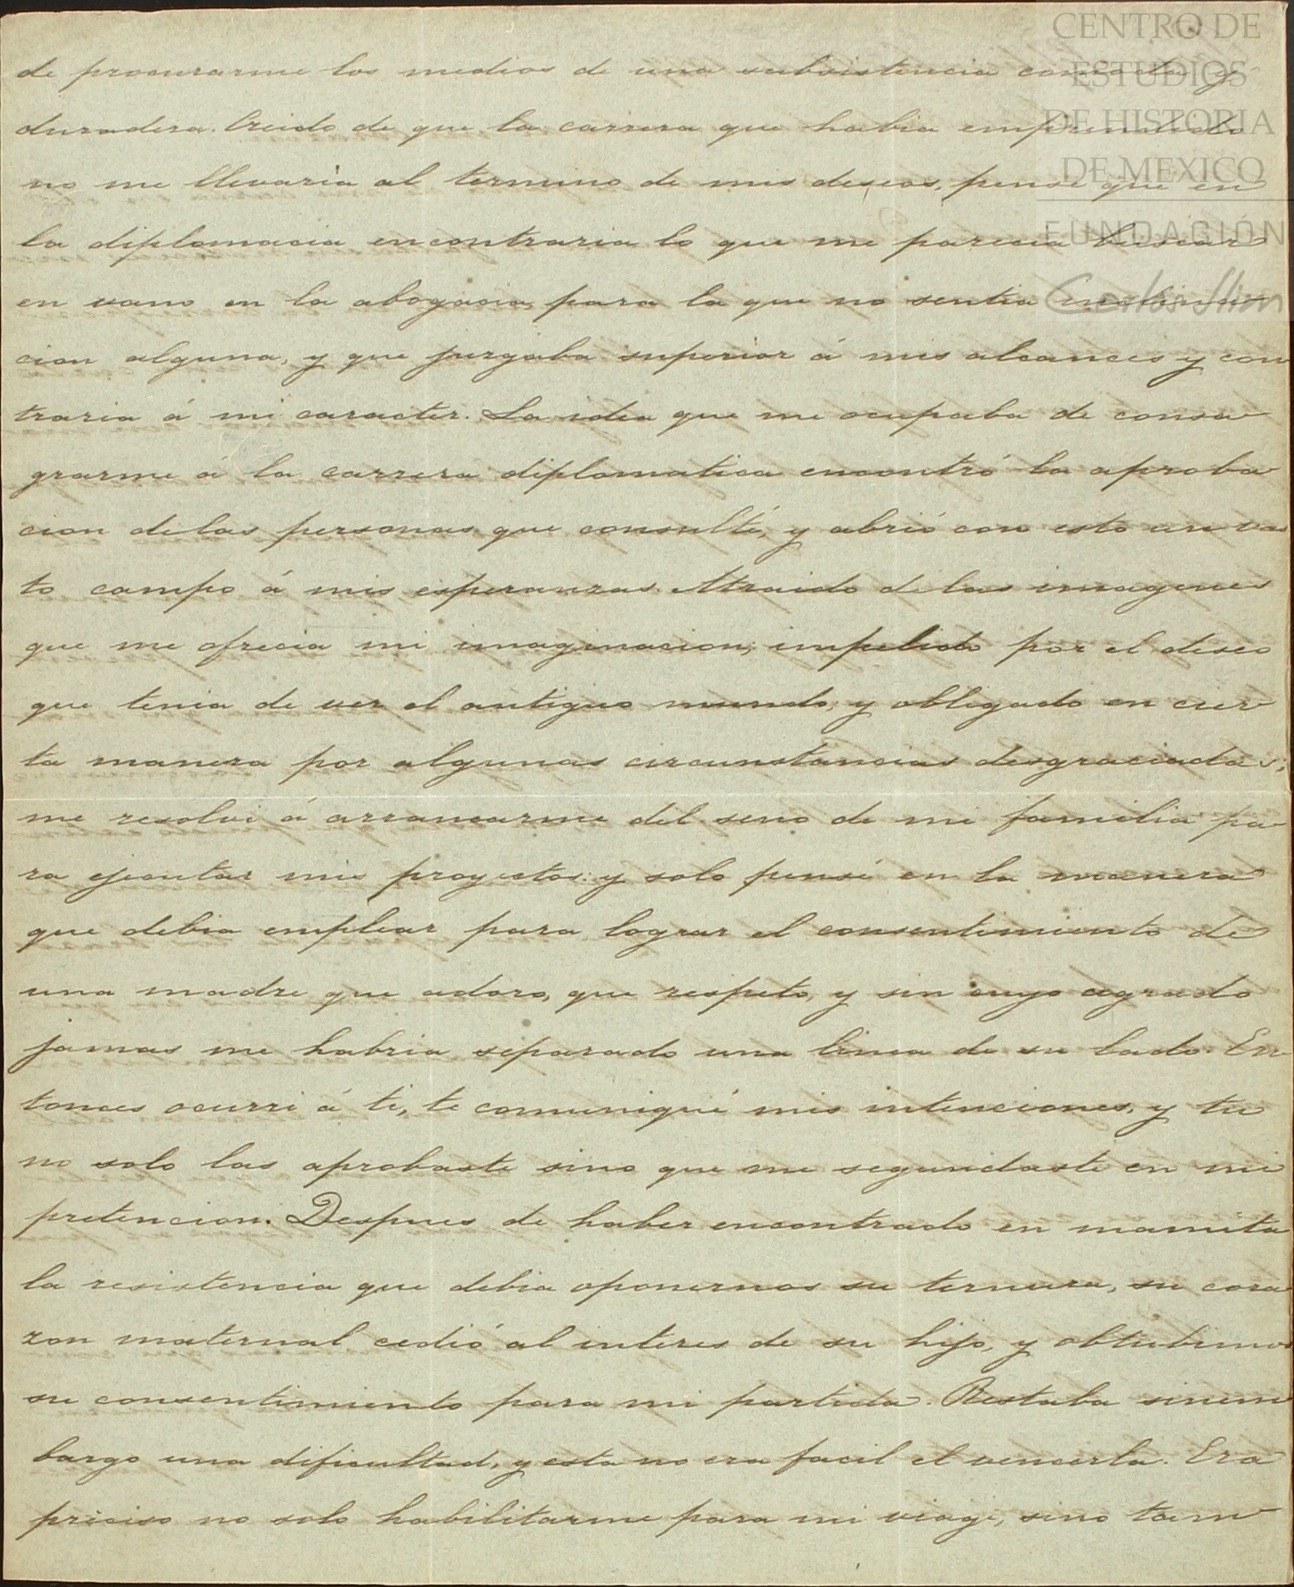 CENTRO DE
ESTUDIOS
DE HISTORIA
DE MEXICO
FUNDACIÓN
Carlos Slim
de procurarme los medios de una subsistencia comoda y
duradera. Creido de que la carrera que habia emprendido
no me llevaria al termino de mis deseos, pensé que en
la diplomacia encontraria lo que me parecia buscar
en vano en la abogacia, para la que no sentia inclina-
cion alguna, y que juzgaba superior á mis alcances y con
traria á mi caracter. La idea que me ocupaba de consa-
grarme a la carrera diplomatica encontró la aproba-
cion de las personas que consulté, y abrió con esto un vas
to campo á mis esperanzas. Atraido de las imagenes
que me ofrecia mi imaginacion, impelido por el deseo
que tenia de ver el antiguo mundo, y obligado en cier-
ta manera por algunas circunstancias desgraciadas;
me resolvi á arrancarme del seno de mi familia pa-
ra ejecutar mis proyectos: y solo pensé en la manera
que debia emplear para lograr el consentimiento de
una madre que adoro, que respeto, y sin cuyo agrado
jamas me habria separado una linea de su lado. En-
tonces ocurri á ti, te comuniqué mis intenciones, y tu
no solo las aprobaste sino que me segundaste en mi
pretencion. Despues de haber encontrado en mamita
la resistencia que debia oponernos su ternura, su cora
zon maternal cedió al interes de su hijo, y obtubimos
su consentimiento para mi partida. Restaba sinem
bargo una dificultad, y esta no era facil el vencerla. Era
preciso no solo habilitarme para mi viage, sino tam-